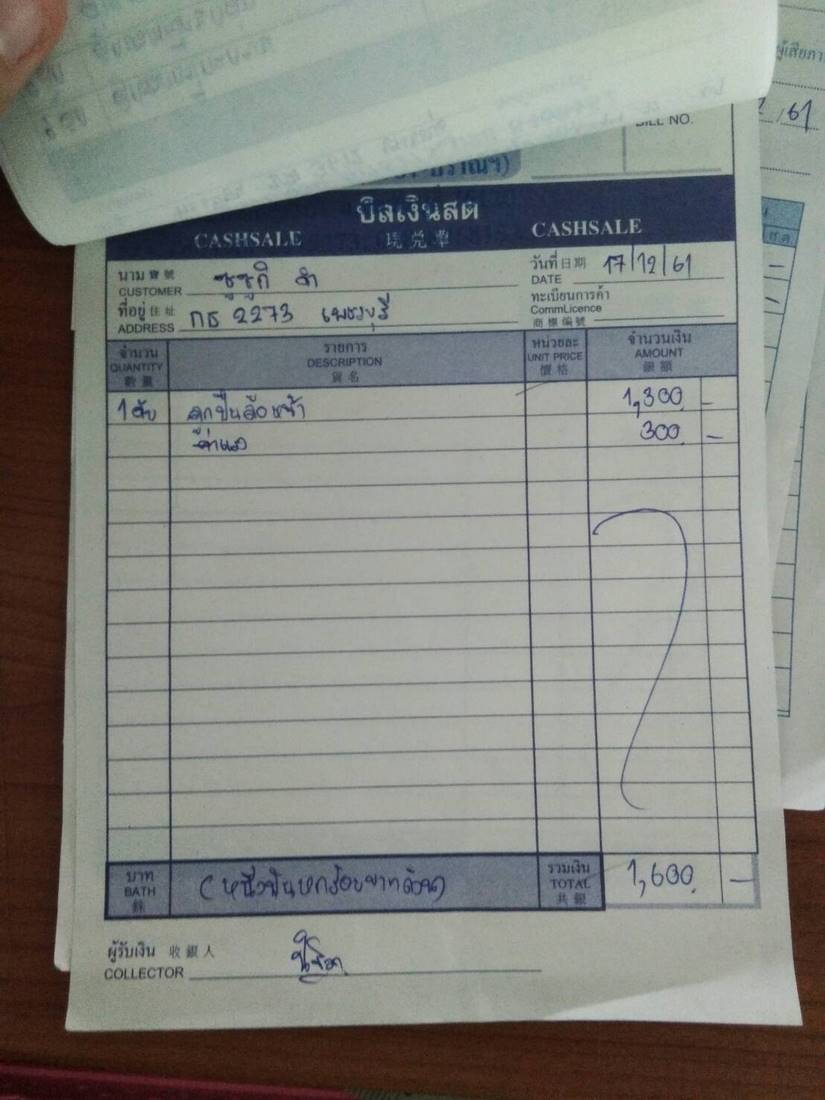 /61
BILL NO.
บิลเงินสด
CASHSALE 現兌單 CASHSALE
นาม 寶號 ซูซูกิ ดำ วันที่ 日期 17/12/61
CUSTOMER DATE
ที่อยู่ 住址 กธ 2273 เพชรบุรี ทะเบียนการค้า
ADDRESS CommLicence
商標編號
จำนวน รายการ หน่วยละ จำนวนเงิน
QUANTITY DESCRIPTION UNIT PRICE AMOUNT
數量 貨名 價格 銀額
1 ตับ ลูกปืนล้อหน้า 1,300 –
ค่าแรง 300 –
บาท (หนึ่งพันหกร้อยบาทถ้วน) รวมเงิน 1,600 –
BATH TOTAL
銖 共銀
ผู้รับเงิน 收銀人
COLLECTOR